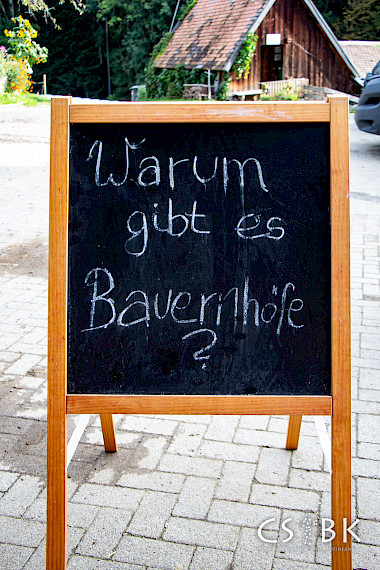 Warum
gibt es
Bauernhöfe
?
CS BK